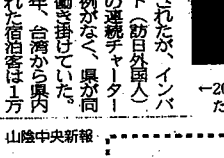 されたが、インバ
ト（訪日外国人）
の連続チャーター
例がなく、県が同
働き掛けていた。
年、台湾から県内
れた宿泊客は１万
←20
た
山陰中央新報